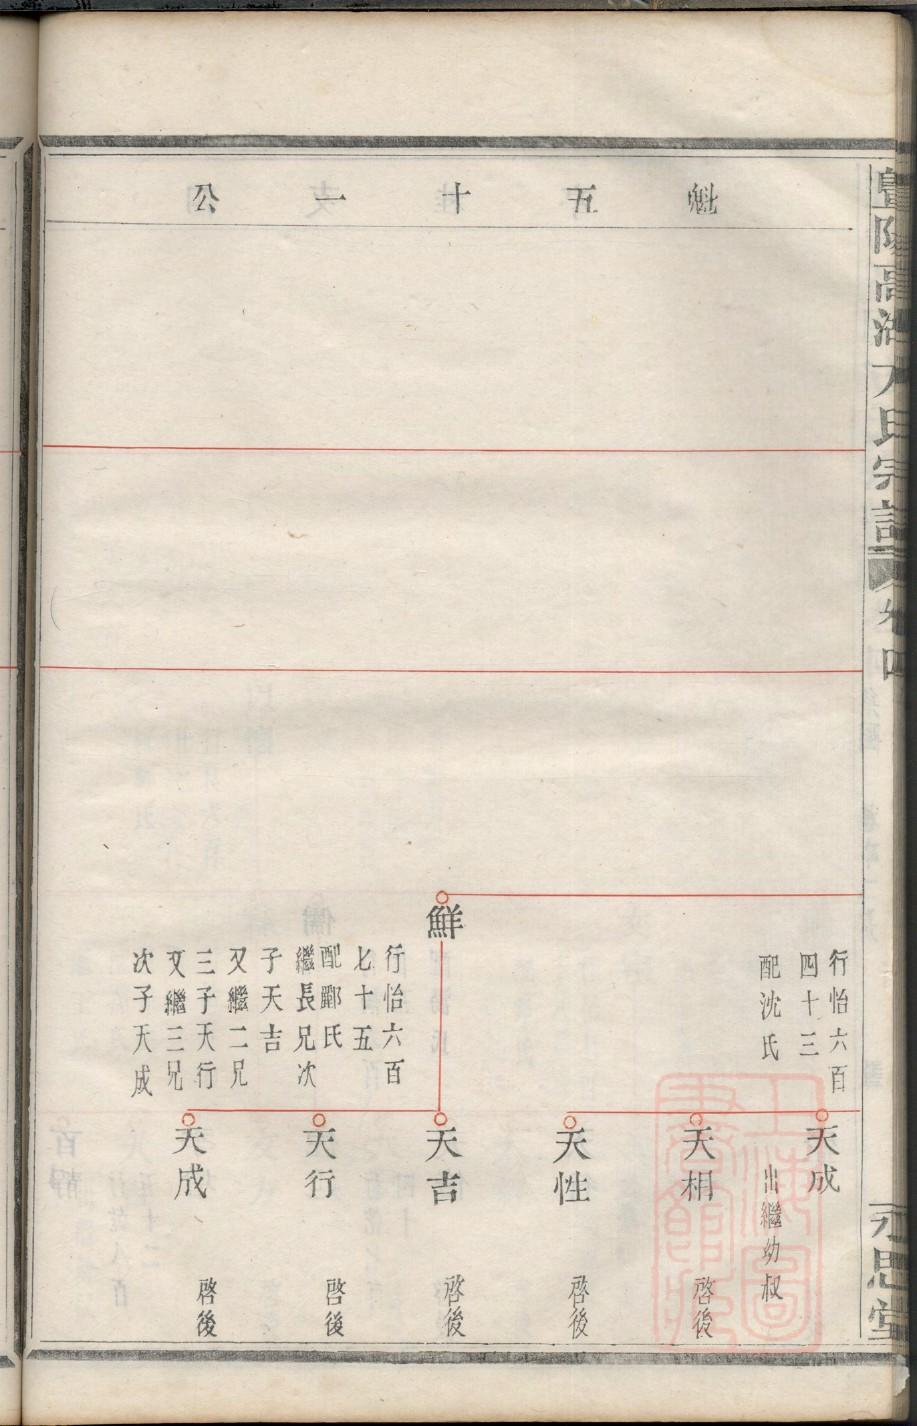 魁五十一公
暨陽高湖方氏宗譜
卷四
永思堂
行怡六百
四十三
配沈氏
天成
出繼幼叔
天相
啓後
天性
啓後
鮮
行怡六百
七十五
配酈氏
繼長兄次
子天吉
又繼二兄
三子天行
又繼三兄
次子天成
天吉
啓後
天行
啓後
天成
啓後